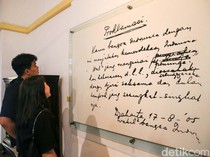 Proklamasi
Kami bangsa Indonesia dengan
ini menjatakan kemerdekaan Indonesia
Hal² jang mengenai
kekoeasaan d.l.l., diselenggarakan
dengan tjara saksama dan dalam
tempoh jang sesingkat-singkat
nja.
Djakarta 17-8-05
Wakil bangsa Indon
detikcom